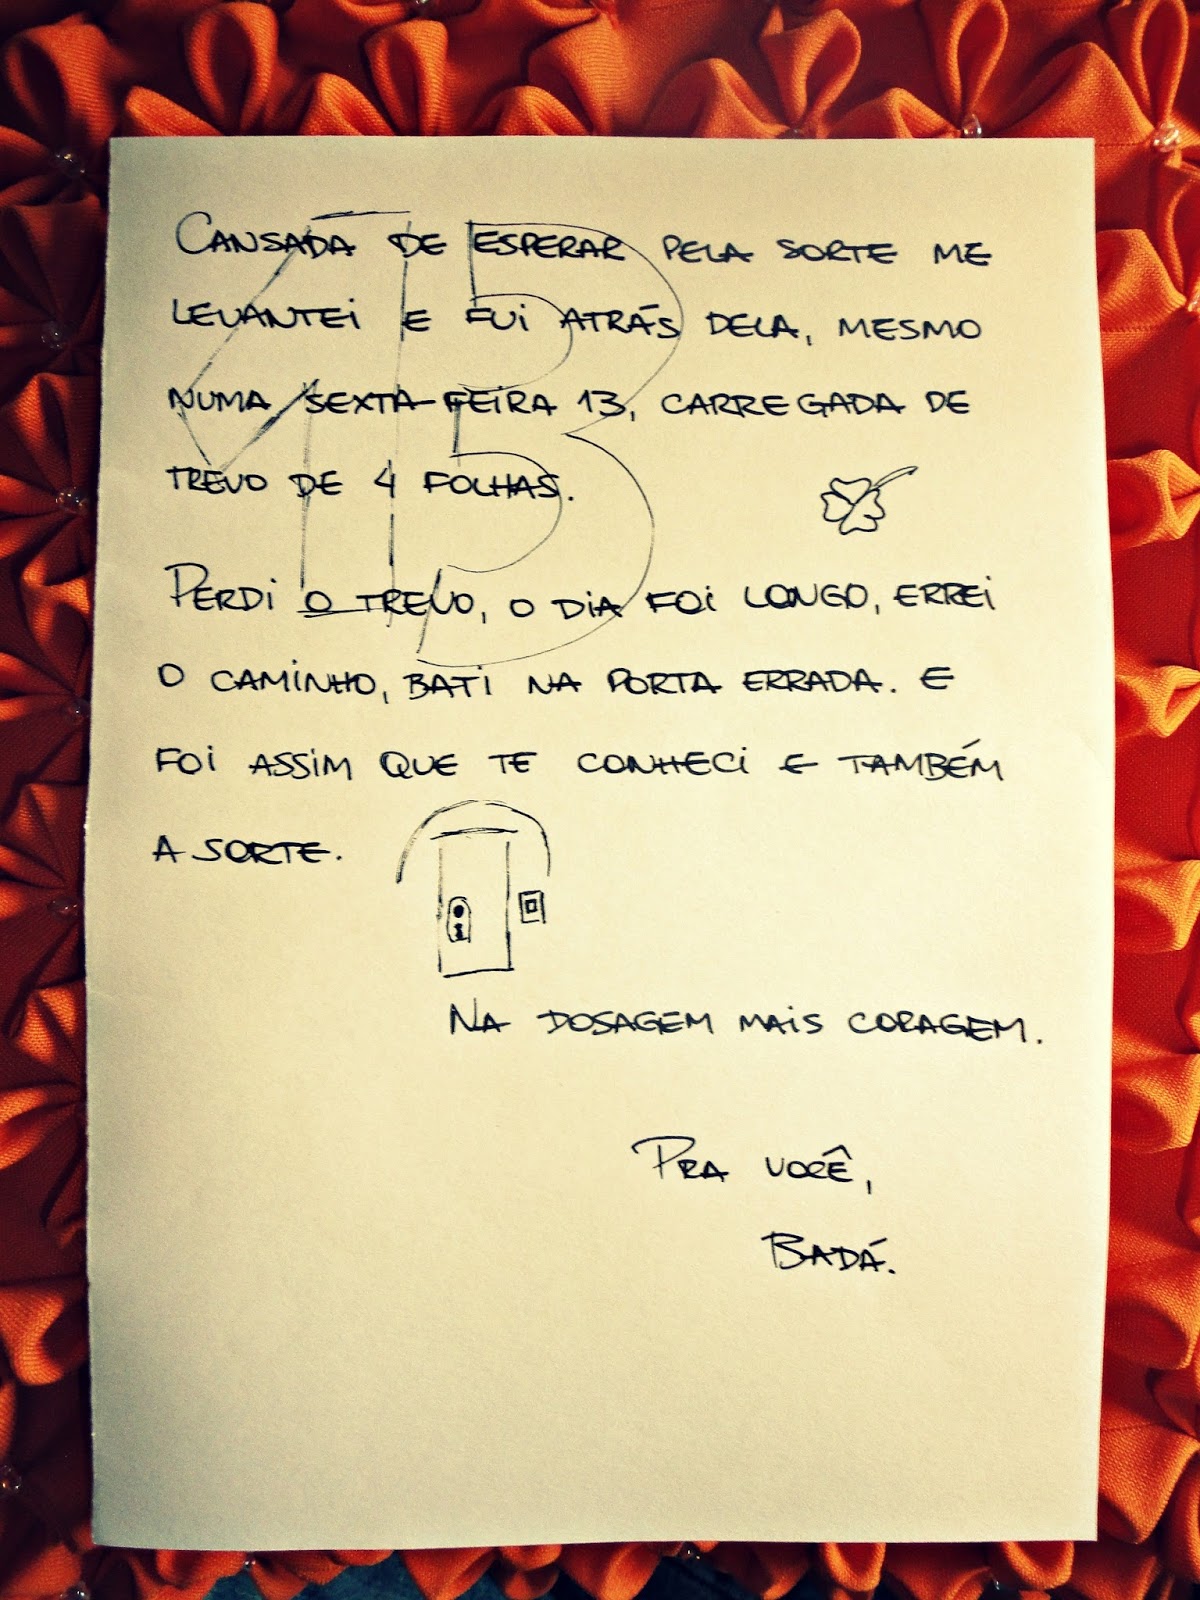 CANSADA DE ESPERAR PELA SORTE ME
LEVANTEI E FUI ATRÁS DELA, MESMO
NUMA SEXTA-FEIRA 13, CARREGADA DE
TREVO DE 4 FOLHAS.
PERDI O TREVO, O DIA FOI LONGO, ERREI
O CAMINHO, BATI NA PORTA ERRADA. E
FOI ASSIM QUE TE CONHECI E TAMBÉM
A SORTE.
NA DOSAGEM MAIS CORAGEM.
PRA VOCÊ,
BADÁ.
13